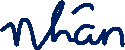 Nhân